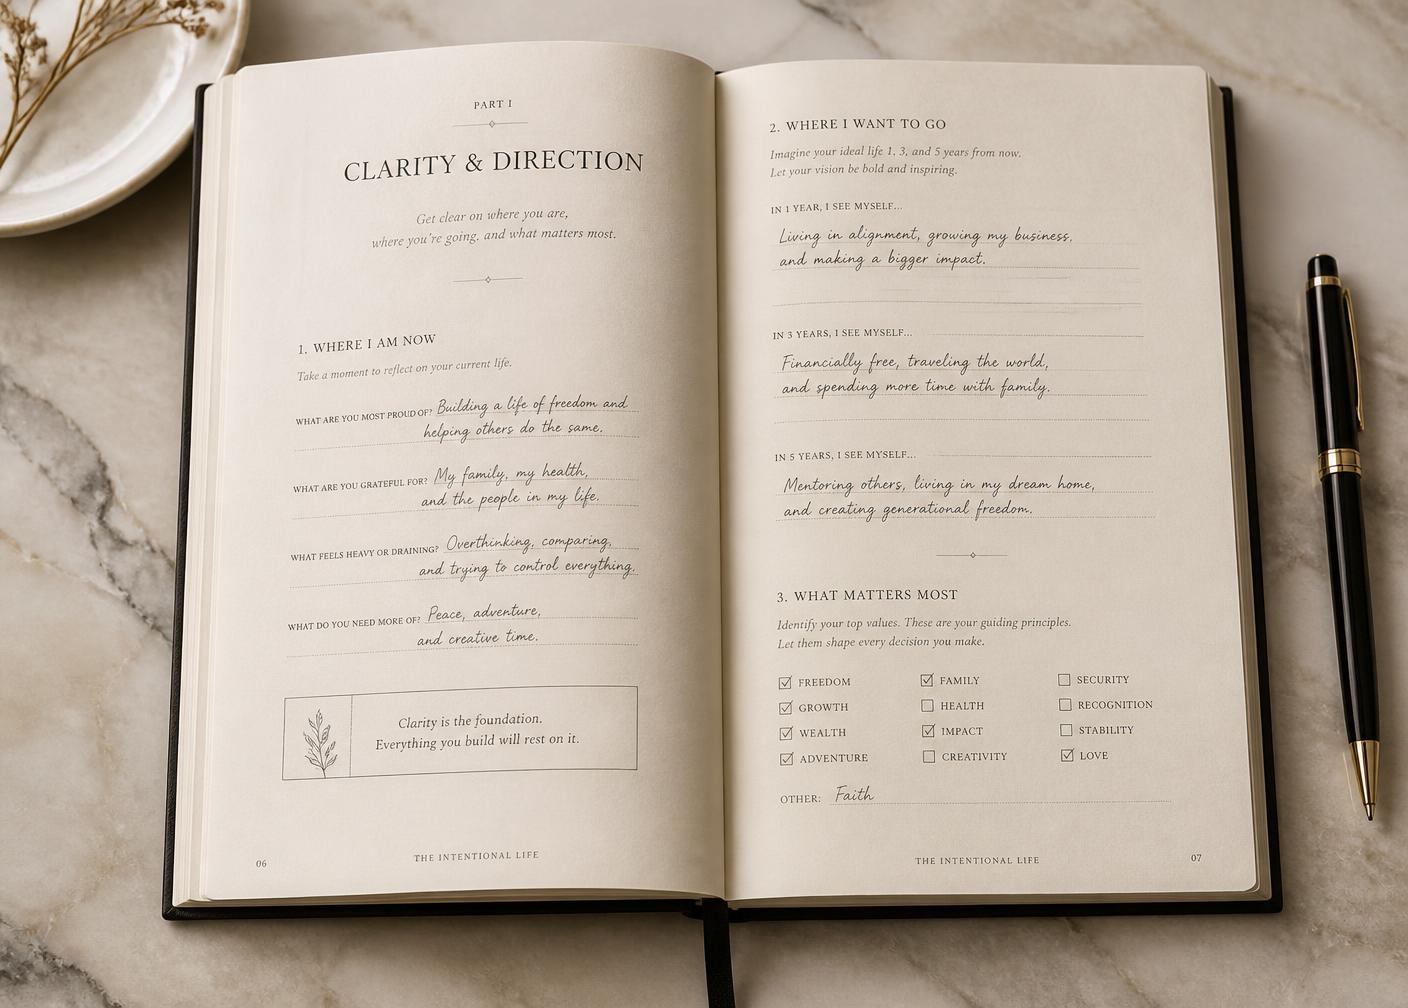 PART I
CLARITY & DIRECTION
Get clear on where you are,
where you're going, and what matters most.
1. WHERE I AM NOW
Take a moment to reflect on your current life.
WHAT ARE YOU MOST PROUD OF? Building a life of freedom and
helping others do the same.
WHAT ARE YOU GRATEFUL FOR? My family, my health,
and the people in my life.
WHAT FEELS HEAVY OR DRAINING? Overthinking, comparing,
and trying to control everything.
WHAT DO YOU NEED MORE OF? Peace, adventure,
and creative time.
Clarity is the foundation.
Everything you build will rest on it.
06
THE INTENTIONAL LIFE
2. WHERE I WANT TO GO
Imagine your ideal life 1, 3, and 5 years from now.
Let your vision be bold and inspiring.
IN 1 YEAR, I SEE MYSELF...
Living in alignment, growing my business,
and making a bigger impact.
IN 3 YEARS, I SEE MYSELF...
Financially free, traveling the world,
and spending more time with family.
IN 5 YEARS, I SEE MYSELF...
Mentoring others, living in my dream home,
and creating generational freedom.
3. WHAT MATTERS MOST
Identify your top values. These are your guiding principles.
Let them shape every decision you make.
☑ FREEDOM ☑ FAMILY ☐ SECURITY
☑ GROWTH ☐ HEALTH ☐ RECOGNITION
☑ WEALTH ☑ IMPACT ☐ STABILITY
☑ ADVENTURE ☐ CREATIVITY ☑ LOVE
OTHER: Faith
THE INTENTIONAL LIFE
07